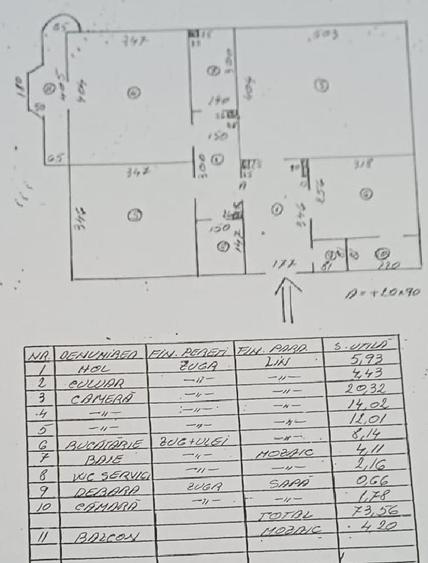 65
347
503
180
50
405
404
300
404
140
150
65
347
300
318
346
150
142
346
256
177
81
120
A = +20x90
NR. DENUMIREA FIN. PERETI FIN. PARD. S. UTILĂ
1 HOL ZUGR LIN 5,93
2 CULOAR —"— —"— 4,43
3 CAMERĂ —"— —"— 20,32
4 —"— —"— —"— 14,02
5 —"— —"— —"— 12,01
6 BUCATĂRIE ZUG+ULEI —"— 8,14
7 BAIE —"— MOZAIC 4,11
8 WC SERVICI —"— —"— 2,16
9 DEBARA ZUGR SAPĂ 0,66
10 CĂMARĂ —"— —"— 1,78
TOTAL 73,56
11 BALCON MOZAIC 4,20